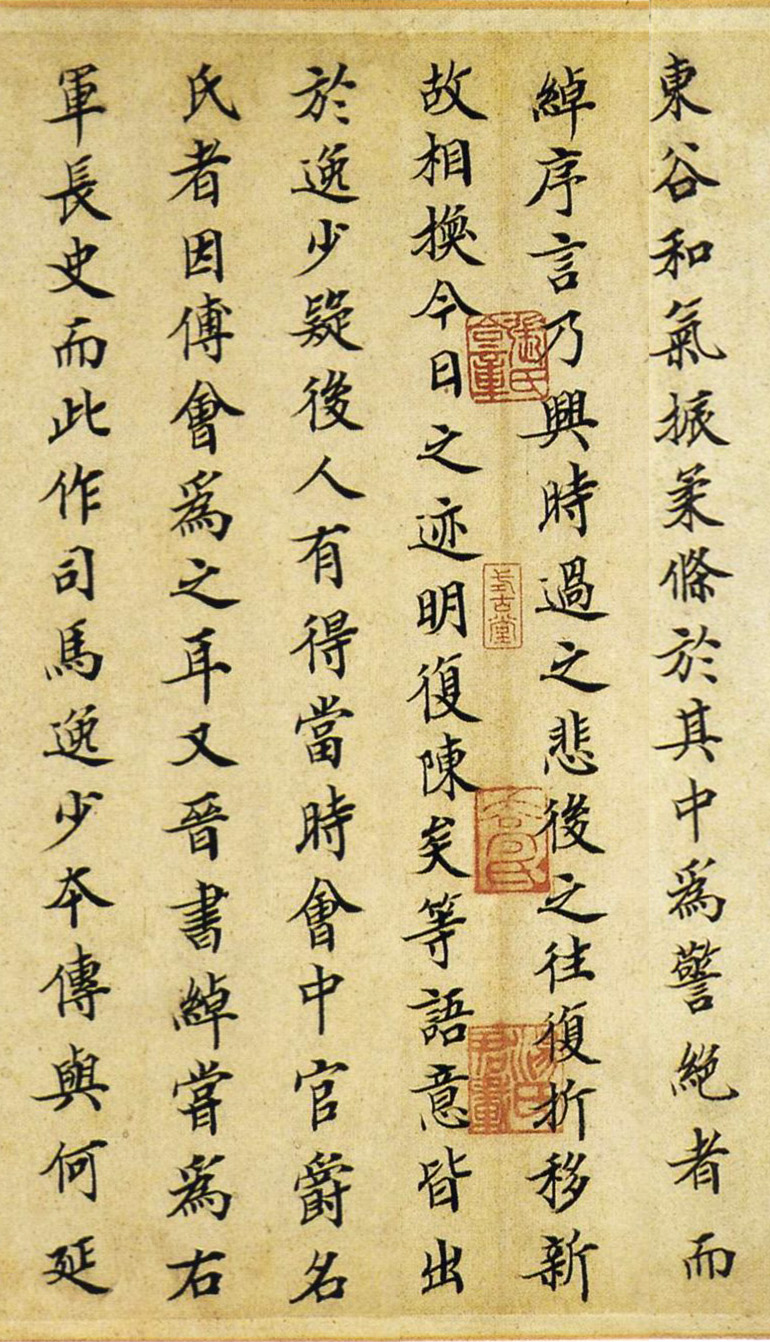 東谷和氣振柔條於其中爲警絕者而
綽序言乃興時過之悲後之往復折移新
故相換今日之迹明復陳矣等語意皆出
於逸少疑後人有得當時會中官爵名
氏者因傅會爲之耳又晉書綽嘗爲右
軍長史而此作司馬逸少本傳與何延